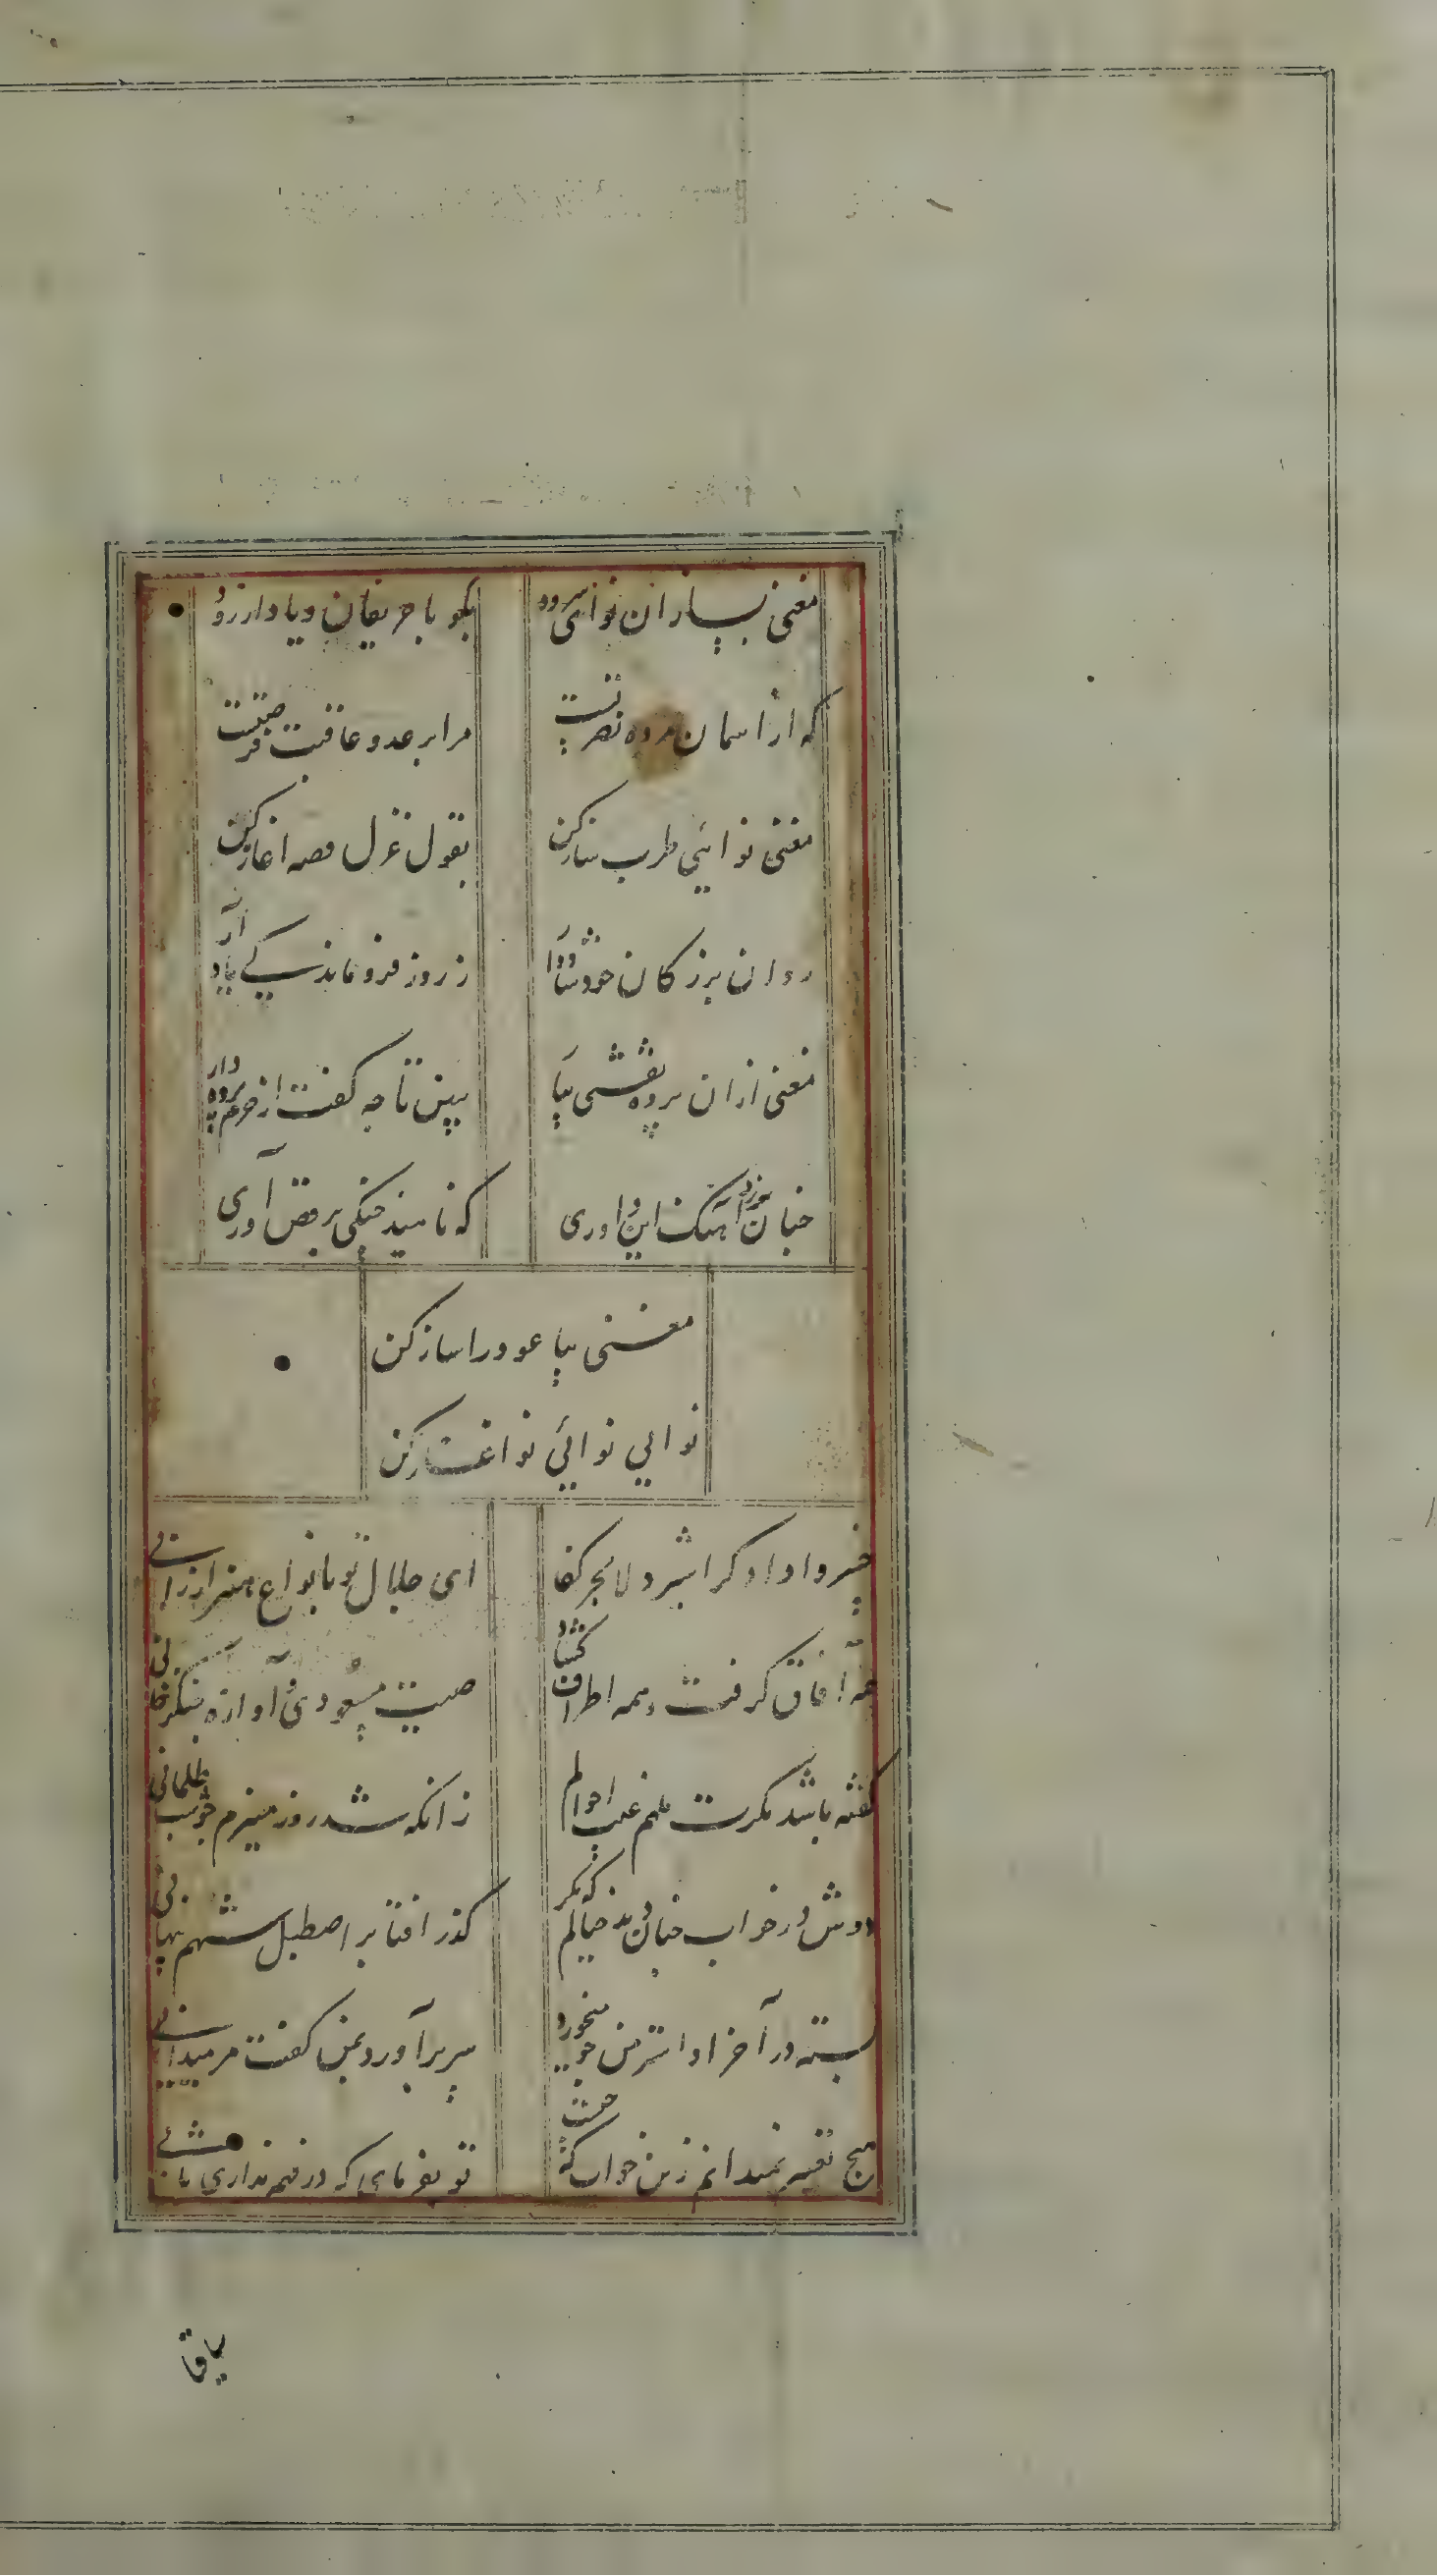 مغنی بساز ان نوای سرود بکو با حریفان و یا دار زرود
که از اسمان مژده نصرتست مرا بر عدو عاقبت فرصتست
مغنی نوائی طرب ساز کن بقول غزل قصه اغاز کن
روان بزرکان خود شاد دار ز روز فرو ماندکی یاد آر
مغنی ازان پرده نقشی بیا ببین تا چه کفت از حرم پرده دار
چنان برزن آهنک این داوری که ناهید چنکی برقص آوری
مغنی بیا عود را ساز کن
نوایی نوائی نو اغاز کن
خسروا دادکرا شیردلا بحرکفا ای جلال تو بانواع هنر ارزانی
همه آفاق کرفت و همه اطراف کشاد صیت مسعودی و آوازه شنکرفانی
کفته باشد مکرت ملهم غیب احوالم زانکه شد روز منیرم چو شب ظلمانی
دوش در خواب چنان دید خیالم که مکر کذر افتاد بر اصطبل شهم پنهانی
بسته در آخر او استر من جو میخورد سر برآورد بمن کفت مرمیدانی
هیچ تعبیر نمیدانم زین خواب که چیست تو بفرمای که در فهم نداری ثانی
بیاقا